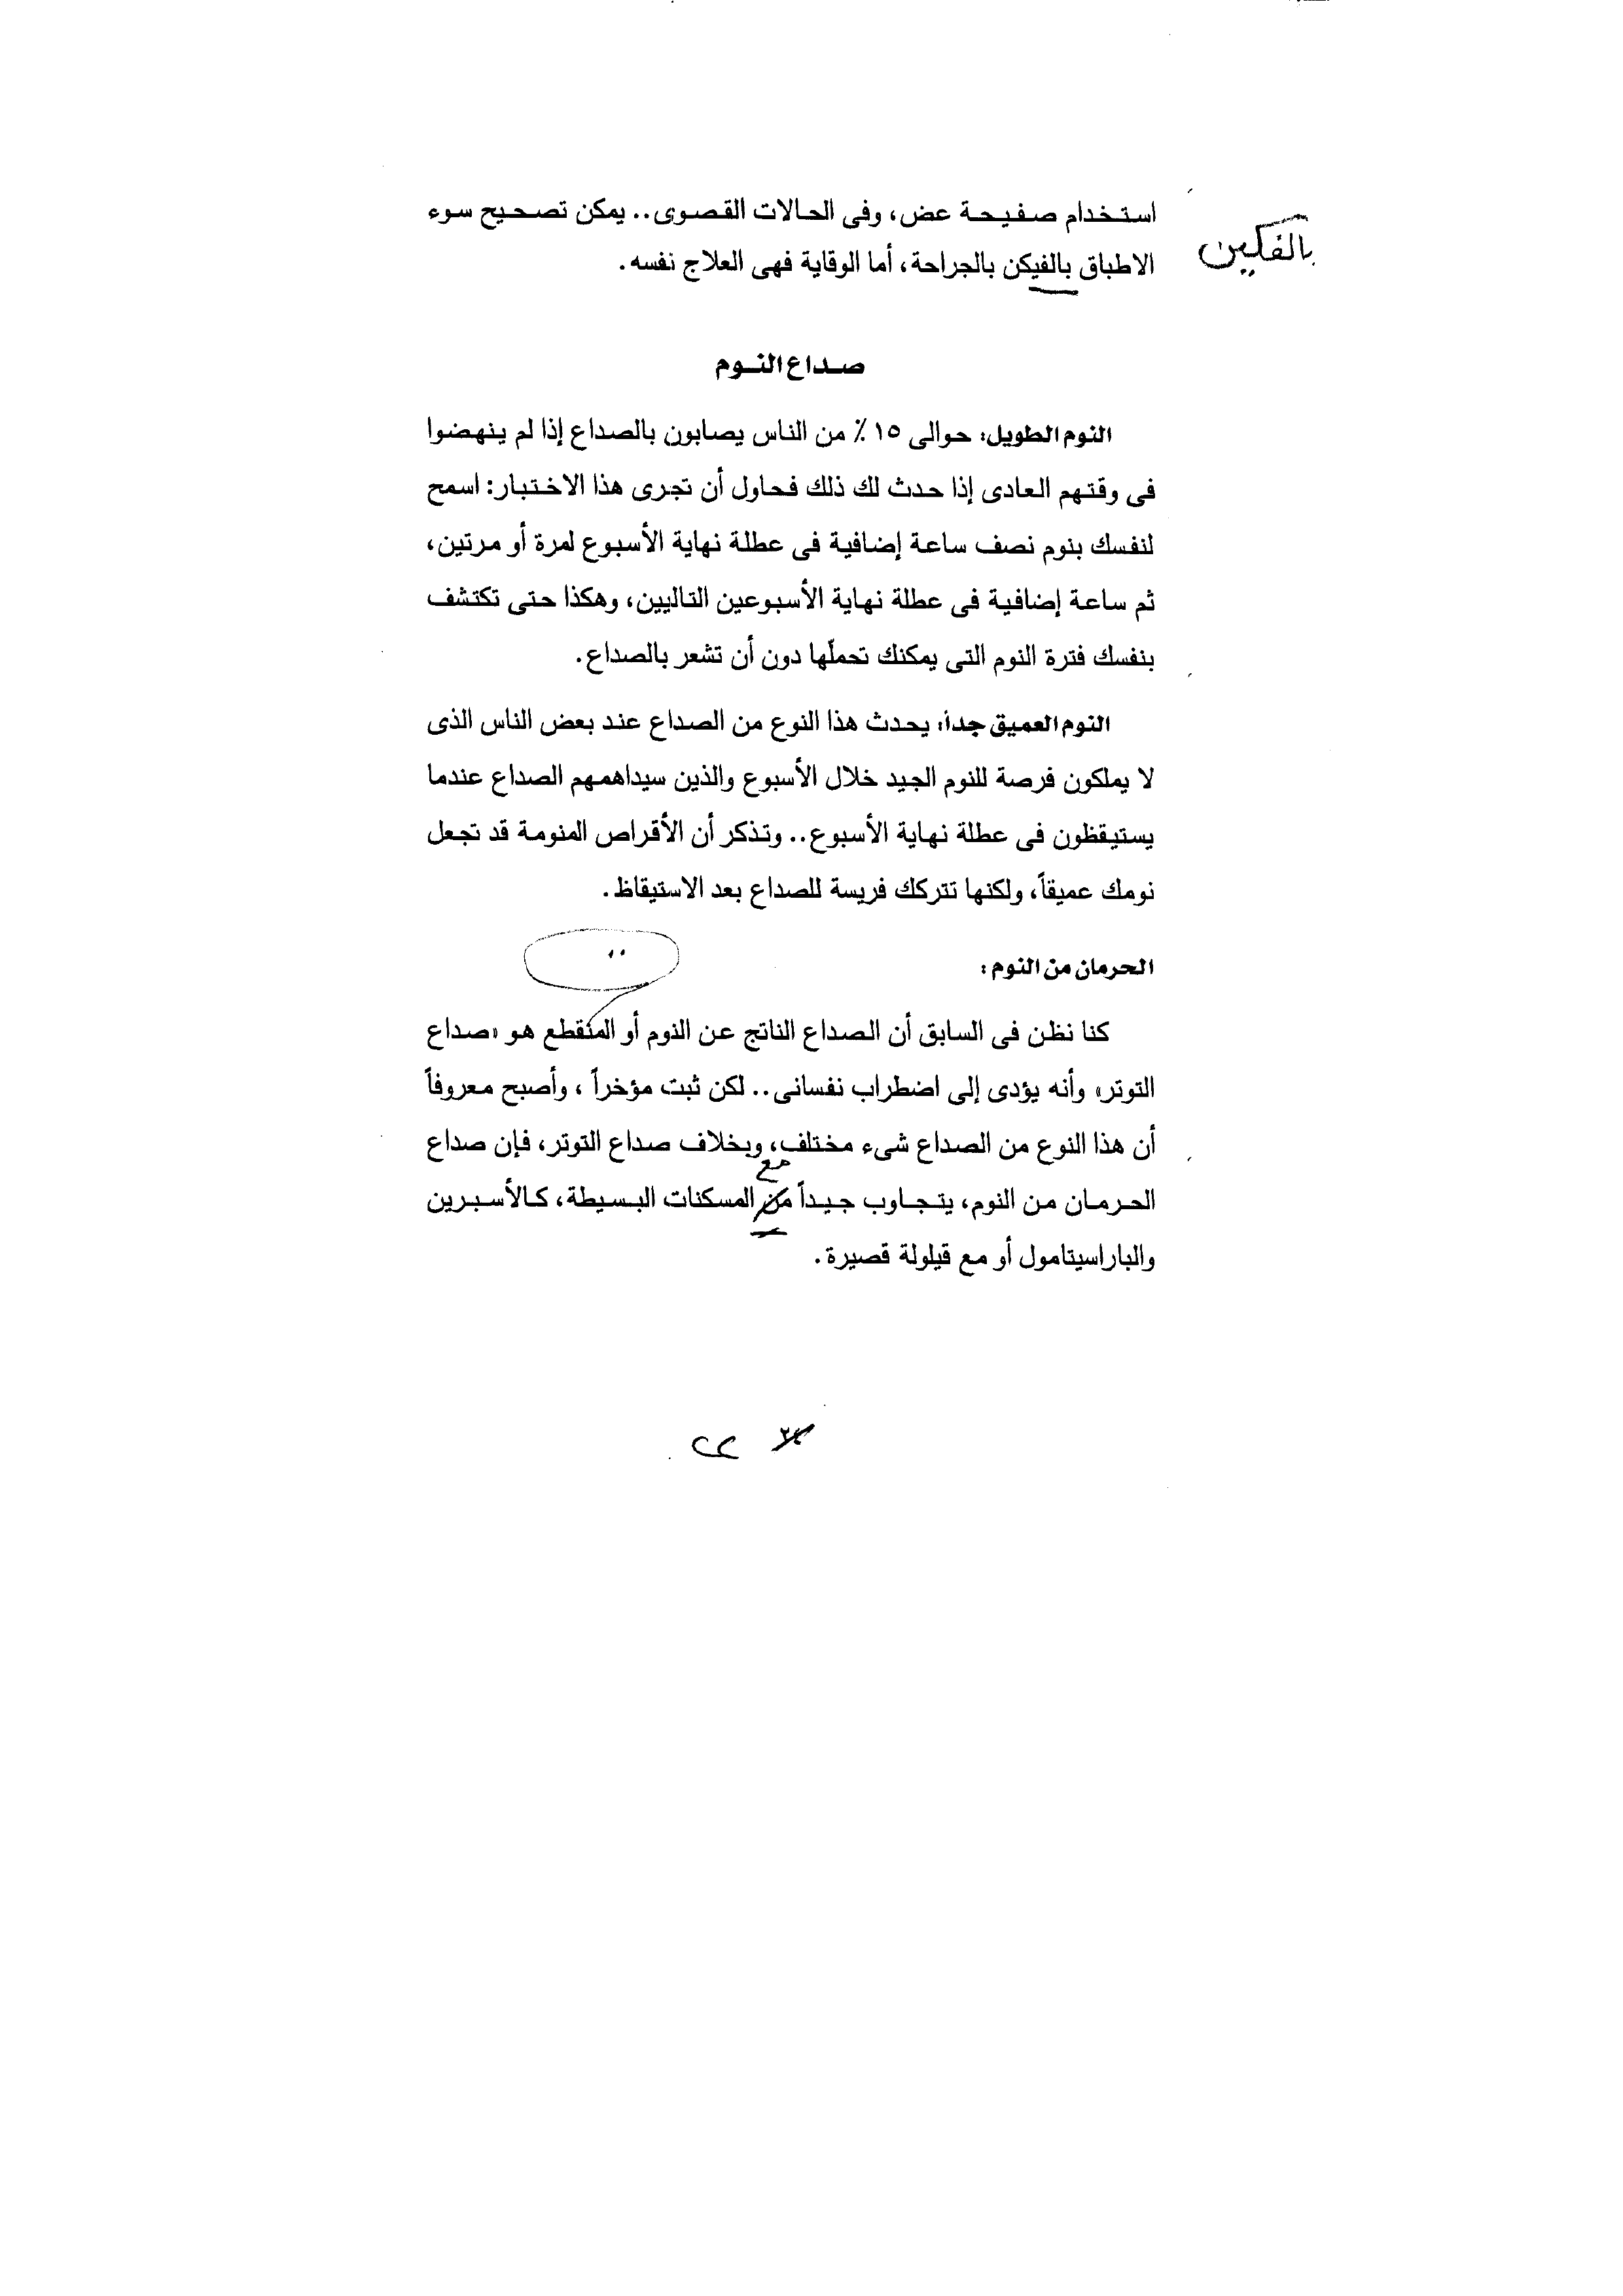 استخدام صفيحة عض، وفى الحالات القصوى.. يمكن تصحيح سوء
بالفكين
الاطباق بالفيكن بالجراحة، أما الوقاية فهى العلاج نفسه.
صداع النوم
النوم الطويل: حوالى ١٥ ٪ من الناس يصابون بالصداع إذا لم ينهضوا
فى وقتهم العادى إذا حدث لك ذلك فحاول أن تجرى هذا الاختبار: اسمح
لنفسك بنوم نصف ساعة إضافية فى عطلة نهاية الأسبوع لمرة أو مرتين،
ثم ساعة إضافية فى عطلة نهاية الأسبوعين التاليين، وهكذا حتى تكتشف
بنفسك فترة النوم التى يمكنك تحملّها دون أن تشعر بالصداع.
النوم العميق جداً: يحدث هذا النوع من الصداع عند بعض الناس الذى
لا يملكون فرصة للنوم الجيد خلال الأسبوع والذين سيداهمهم الصداع عندما
يستيقظون فى عطلة نهاية الأسبوع.. وتذكر أن الأقراص المنومة قد تجعل
نومك عميقاً، ولكنها تتركك فريسة للصداع بعد الاستيقاظ.
الحرمان من النوم:
كنا نظن فى السابق أن الصداع الناتج عن النوم أو المتقطع هو «صداع
التوتر» وأنه يؤدى إلى اضطراب نفسانى.. لكن ثبت مؤخراً ، وأصبح معروفاً
أن هذا النوع من الصداع شىء مختلف، وبخلاف صداع التوتر، فإن صداع
مع
الحرمان من النوم، يتجاوب جيداً من المسكنات البسيطة، كالأسبرين
والباراسيتامول أو مع قيلولة قصيرة.